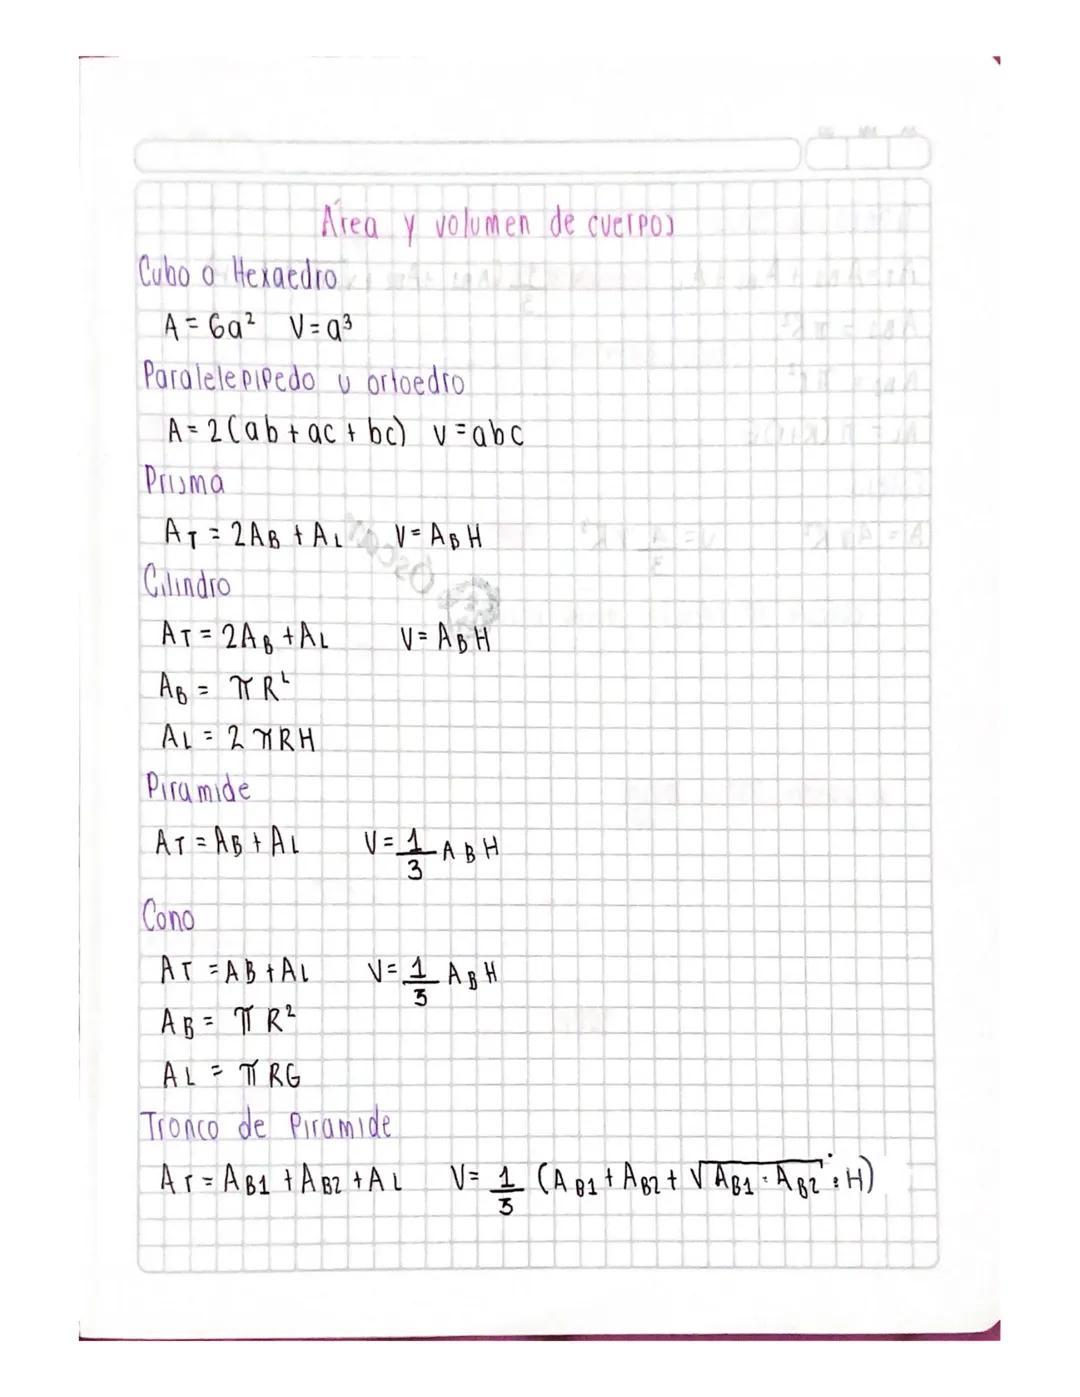 Área y volumen de cuerpos
Cubo o Hexaedro
A = 6a² V = a³
Paralelepipedo u ortoedro
A = 2(ab + ac + bc) v = abc
Prisma
AT = 2AB + AL V = ABH
Oscar
Cilindro
AT = 2AB + AL V = ABH
AB = πR²
AL = 2πRH
Piramide
AT = AB + AL V = 1/3 ABH
Cono
AT = AB + AL V = 1/3 ABH
AB = πR²
AL = πRG
Tronco de Piramide
AT = AB1 + AB2 + AL V = 1/3 (AB1 + AB2 + √AB1 · AB2 · H)